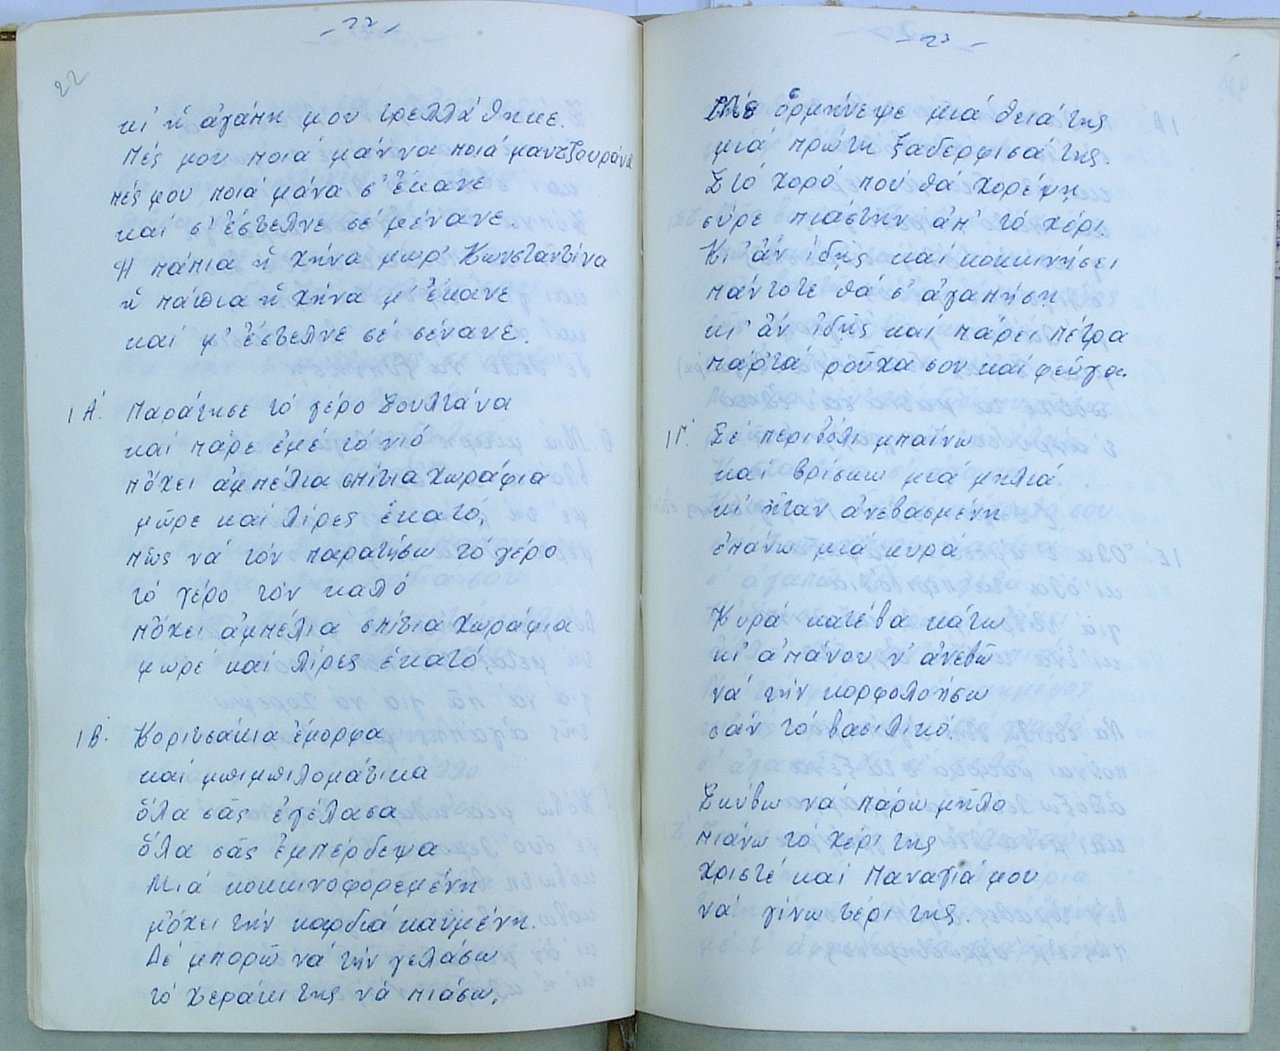 - 22 -
22
κι' ἡ ἀγάπη μου τρελλάθηκε.
Πές μου ποιά μάννα ποιά μαντζουράνα
πές μου ποιά μάνα σ' ἔκανε
καί σ' ἔστελνε σέ μένανε.
Ἡ πάπια ἡ χήνα μωρ' Κωνσταντίνα
ἡ πάπια ἡ χήνα μ' ἔκανε
καί μ' ἔστελνε σέ σένανε.
1Α'. Παράτησε τό γέρο Σουλτάνα
καί πάρε ἐμέ τό νιό
πὄχει ἀμπέλια σπίτια χωράφια
μῶρε καί λίρες ἑκατό,
πῶς νά τόν παρατήσω τό γέρο
τό γέρο τόν καλό
πὄχει ἀμπέλια σπίτια χωράφια
μωρέ καί λίρες ἑκατό
1Β'. Κοριτσάκια ἔμορφα
καί μπιμπιλομάτικα
ὅλα σᾶς ἐγέλασα
ὅλα σᾶς ἐμπέρδεψα
Μιά κοκκινοφορεμένη
μὄχει τήν καρδιά καϋμένη.
Δέ μπορῶ νά τήν γελάσω
τό χεράκι της νά πιάσω,
- 23 -
Μέ ὁρμήνεψε μιά θειά της
μιά πρώτη ξαδερφισά της
Στό χορό πού θά χορέψη
σύρε πιάστην ἀπ' τό χέρι
Κι' ἄν ἰδῆς καί κοκκινήσει
πάντοτε θά σ' ἀγαπήση
κι' ἄν ἰδῆς καί πάρει πέτρα
πάρ' τά ροῦχα σου καί φεύγα.
1Γ'. Σέ περιβόλι μπαίνω
καί βρίσκω μιά μηλιά
κι' ἦταν ἀνεβασμένη
ἐπάνω μιά κυρά
Κυρά κατέβα κάτω
κι' ἀπάνου ν' ἀνεβῶ
νά τήν κορφολοήσω
σάν τό βασιλικό
Σκύβω νά πάρω μῆλο
πιάνω το χέρι της
Χριστέ καί Παναγιά μου
νά γίνω τέρι της